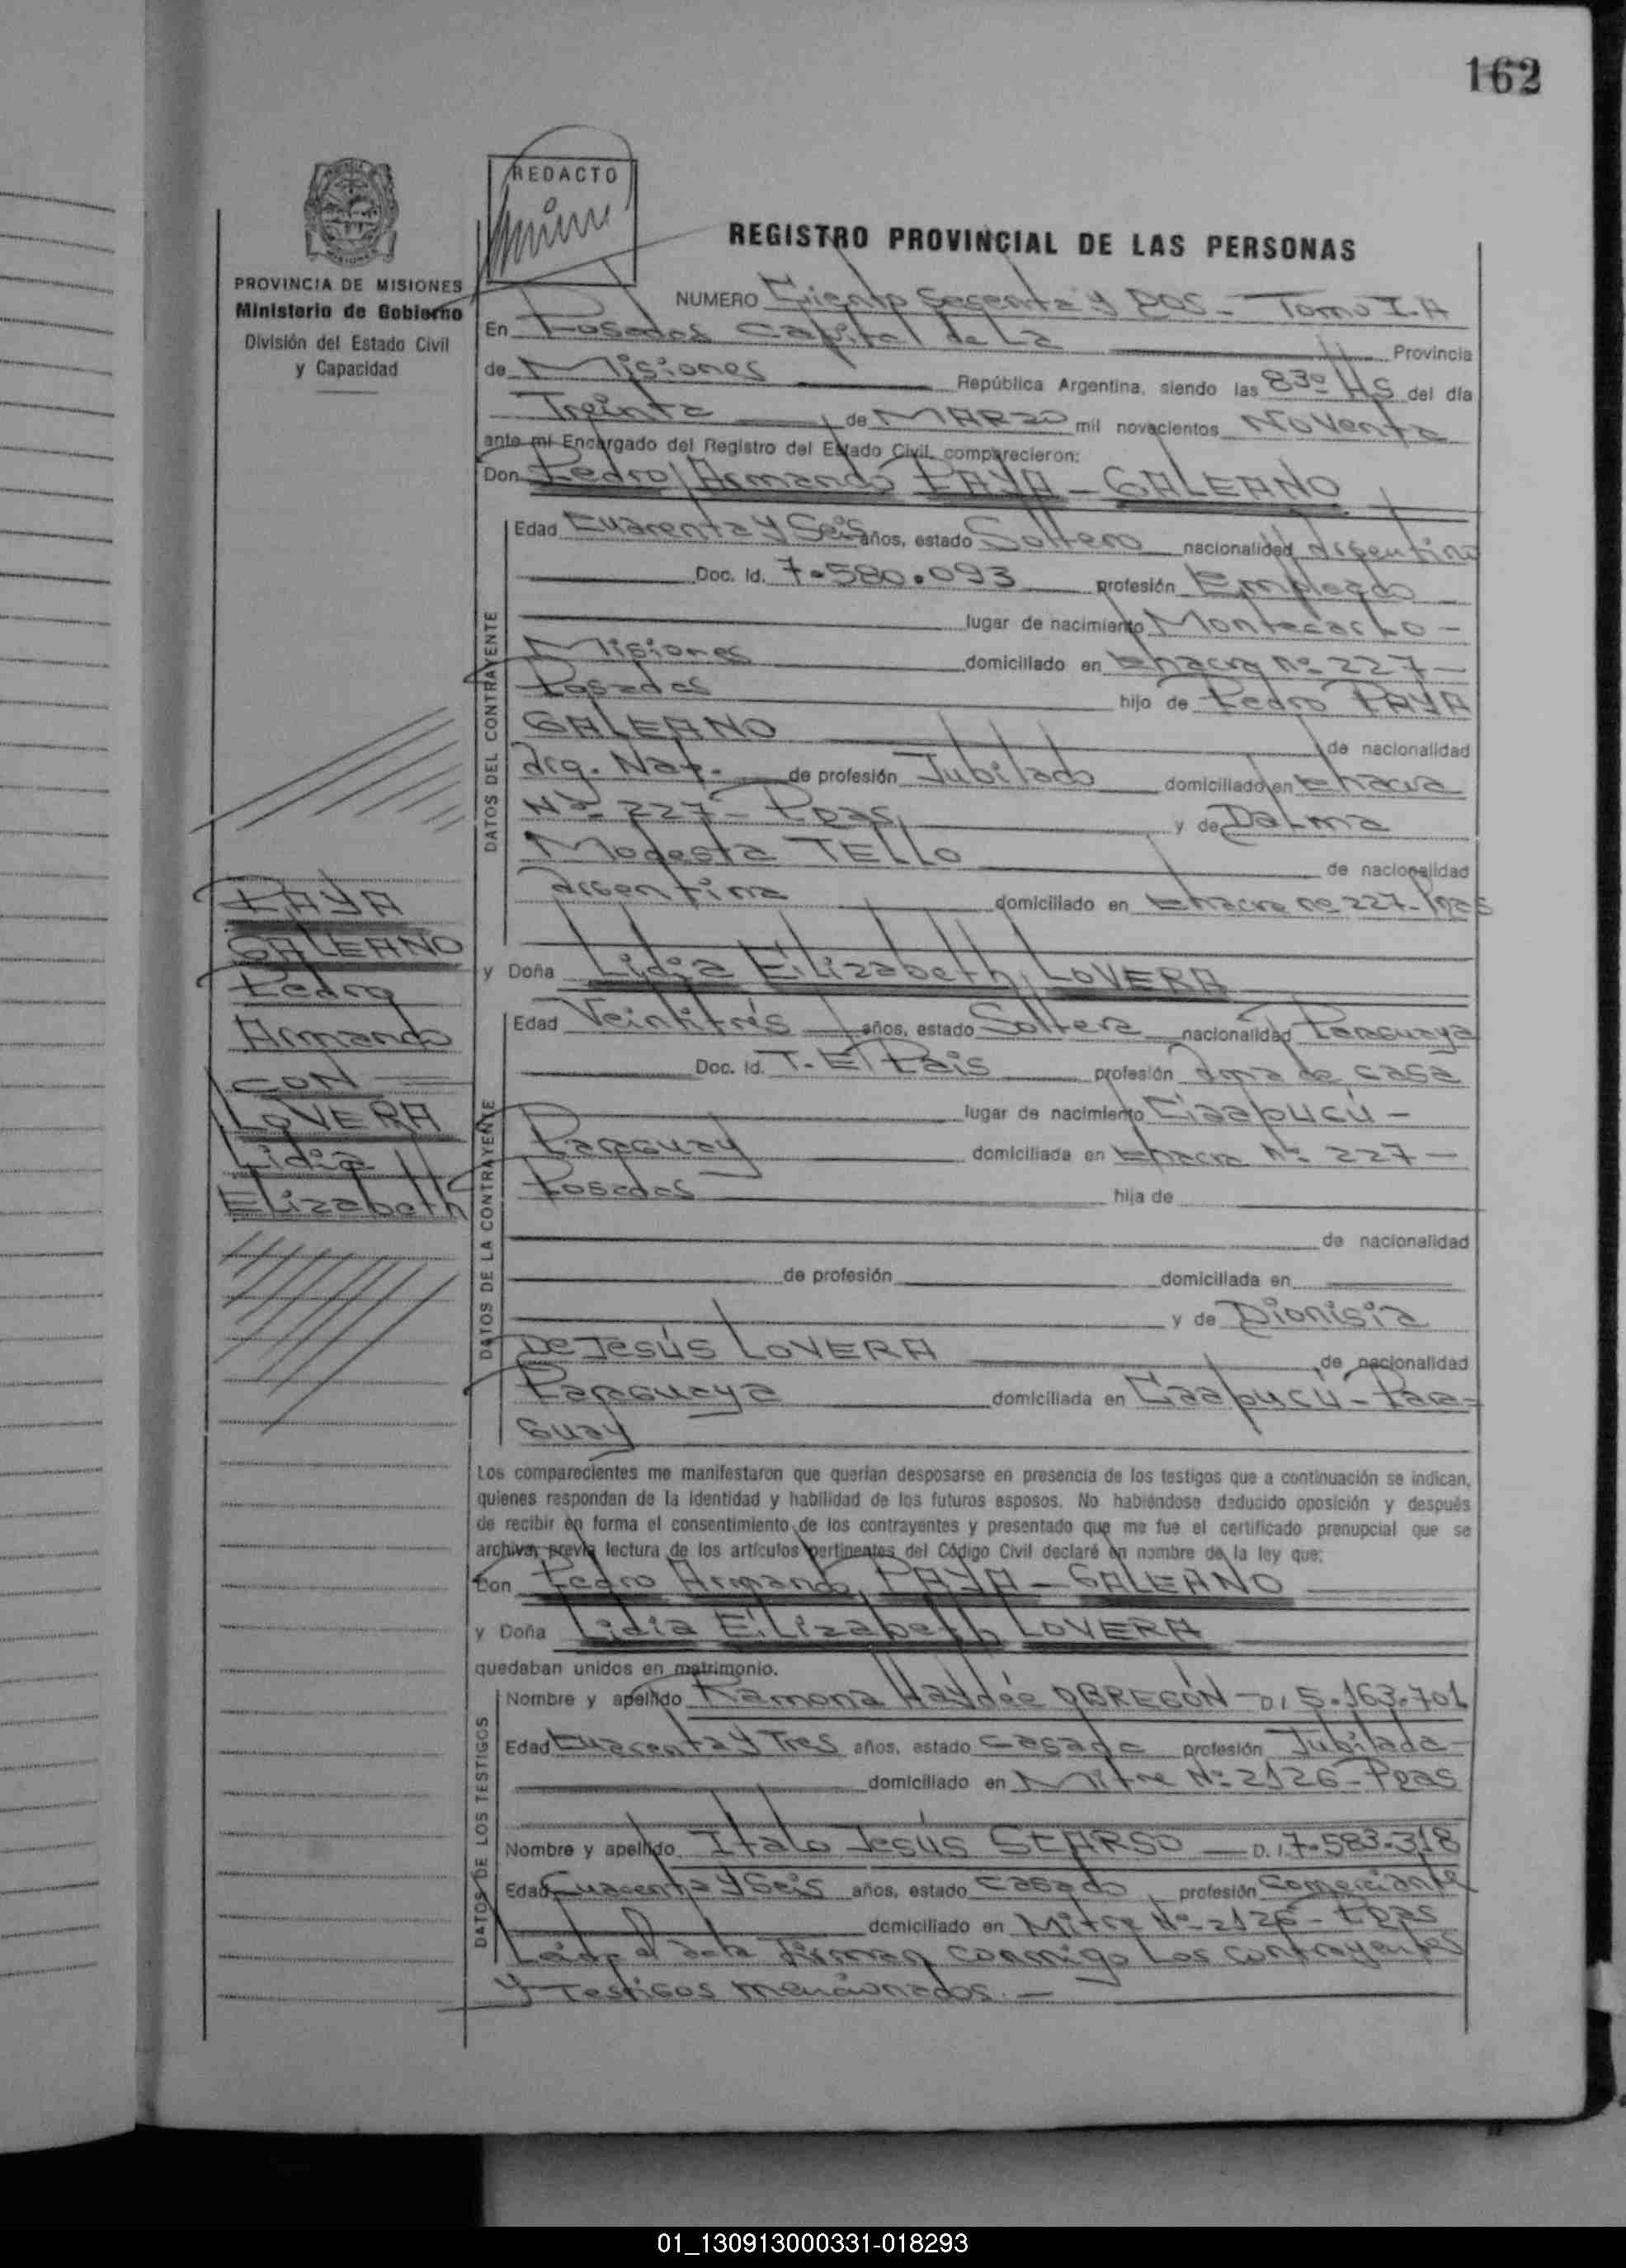 162
REDACTO
REGISTRO PROVINCIAL DE LAS PERSONAS
PROVINCIA DE MISIONES
Ministerio de Gobierno
División del Estado Civil
y Capacidad
NUMERO Ciento Sesenta y Dos - Tomo I-A
En Posadas Capital de La Provincia
de Misiones República Argentina, siendo las 830 HS del día
Treinta de MARZO mil novecientos Noventa
ante mí Encargado del Registro del Estado Civil, comparecieron:
Don Pedro Armando PAYA - GALEANO
DATOS DEL CONTRAYENTE
Edad Cuarenta y Seis años, estado Soltero nacionalidad Argentino
Doc. Id. 7.580.093 profesión Empleado
lugar de nacimiento Montecarlo -
Misiones domiciliado en Chacra Nº 227 -
Posadas hijo de Pedro PAYA
GALEANO de nacionalidad
Arg. Nat. de profesión Jubilado domiciliado en Chacra
Nº 227 - Pdas y de Dalma
Modesta TELLO de nacionalidad
Argentina domiciliado en Chacra nº 227 - Pdas
y Doña Lidia Elizabeth LOVERA
DATOS DE LA CONTRAYENTE
Edad Veintitrés años, estado Soltera nacionalidad Paraguaya
Doc. Id. T. El País profesión Ama de casa
lugar de nacimiento Caapucú -
Paraguay domiciliada en Chacra Nº 227 -
Posadas hija de
de nacionalidad
de profesión domiciliada en
y de Dionisia
De Jesús LOVERA de nacionalidad
Paraguaya domiciliada en Caapucú - Para-
guay
PAYA
GALEANO
Pedro
Armando
CON
LOVERA
Lidia
Elizabeth
Los comparecientes me manifestaron que querían desposarse en presencia de los testigos que a continuación se indican,
quienes responden de la identidad y habilidad de los futuros esposos. No habiéndose deducido oposición y después
de recibir en forma el consentimiento de los contrayentes y presentado que me fue el certificado prenupcial que se
archiva, previa lectura de los artículos pertinentes del Código Civil declaré en nombre de la ley que:
Don Pedro Armando PAYA - GALEANO
y Doña Lidia Elizabeth LOVERA
quedaban unidos en matrimonio.
DATOS DE LOS TESTIGOS
Nombre y apellido Ramona Haydée OBREGÓN - D.I 5.163.701
Edad Cuarenta y Tres años, estado Casada profesión Jubilada -
domiciliado en Mitre Nº 2126 - Pdas
Nombre y apellido Italo Jesús D.I 7.583.318
Edad Cuarenta y Seis años, estado Casado profesión Comerciante
domiciliado en Mitre Nº 2126 - Pdas
Leída el acta firman conmigo Los contrayentes
y Testigos mencionados. -
01_130913000331-018293